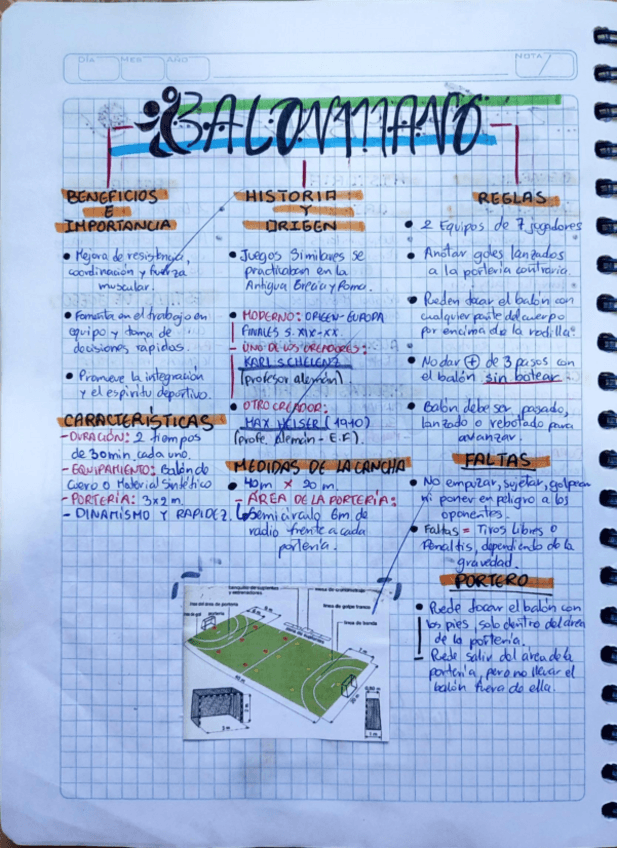 DÍA MES AÑO
NOTA
BALONMANO
BENEFICIOS
E
IMPORTANCIA
• Mejora de resistencia,
coordinación y fuerza
muscular.
• Fomenta en el trabajo en
equipo y toma de
decisiones rapidas.
• Promueve la integración
y el espíritu deportivo.
CARACTERÍSTICAS
- DURACIÓN: 2 tiempos
de 30 min cada uno.
- EQUIPAMIENTO: Balón de
cuero o Material Sintético
- PORTERIA: 3x2 m.
- DINAMISMO Y RAPIDEZ.
HISTORIA
Y
ORIGEN
• Juegos Similares se
practicaban en la
Antigua Grecia y Roma.
• MODERNO: ORIGEN - EUROPA
FINALES S. XIX-XX.
- UNO DE LOS CREADORES:
KARL SCHELENZ
(profesor alemán).
• OTRO CREADOR:
MAX HEISER (1910)
(profe. Alemán - E.F).
MEDIDAS DE LA CANCHA
• 40m x 20 m.
- ÁREA DE LA PORTERIA:
Semicirculo 6m. de
radio frente a cada
porteria.
REGLAS
• 2 Equipos de 7 jugadores
• Anotar goles lanzados
a la porteria contraria.
• Pueden tocar el balón con
cualquier parte del cuerpo
por encima de la rodilla.
• No dar + de 3 pasos con
el balón sin botear.
• Balón debe ser pasado,
lanzado o rebotado para
avanzar.
FALTAS
• No empuzar, sujetar, golpear
ni poner en peligro a los
oponentes.
• Faltas = Tiros libres o
Penaltis, dependiendo de la
gravedad.
PORTERO
• Puede tocar el balón con
los pies, solo dentro del área
de la porteria.
- Puede salir del área de la
porteria, pero no llevar el
balón fuera de ella.
y entrenadores
portería
línea de golpe franco
línea de banda